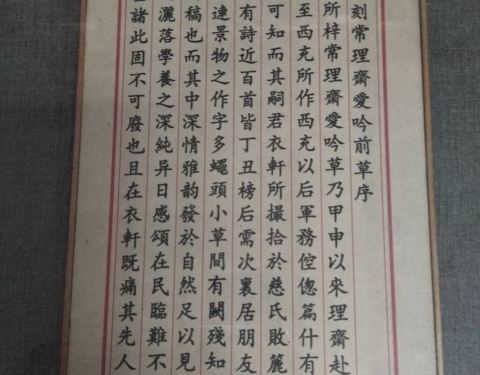 刻常理齋愛吟前草序
所梓常理齋愛吟草乃甲申以來理齋赴
至西充所作西充以后軍務倥偬篇什有
可知而其嗣君衣軒所撮拾於慈氏敗簏
有詩近百首皆丁丑榜后需次裏居朋友
連景物之作字多蠅頭小草間有闕殘知
稿也而其中深情雅韵發於自然足以見
灑落學養之深純异日感頌在民臨難不
諸此固不可廢也且在衣軒既痛其先人